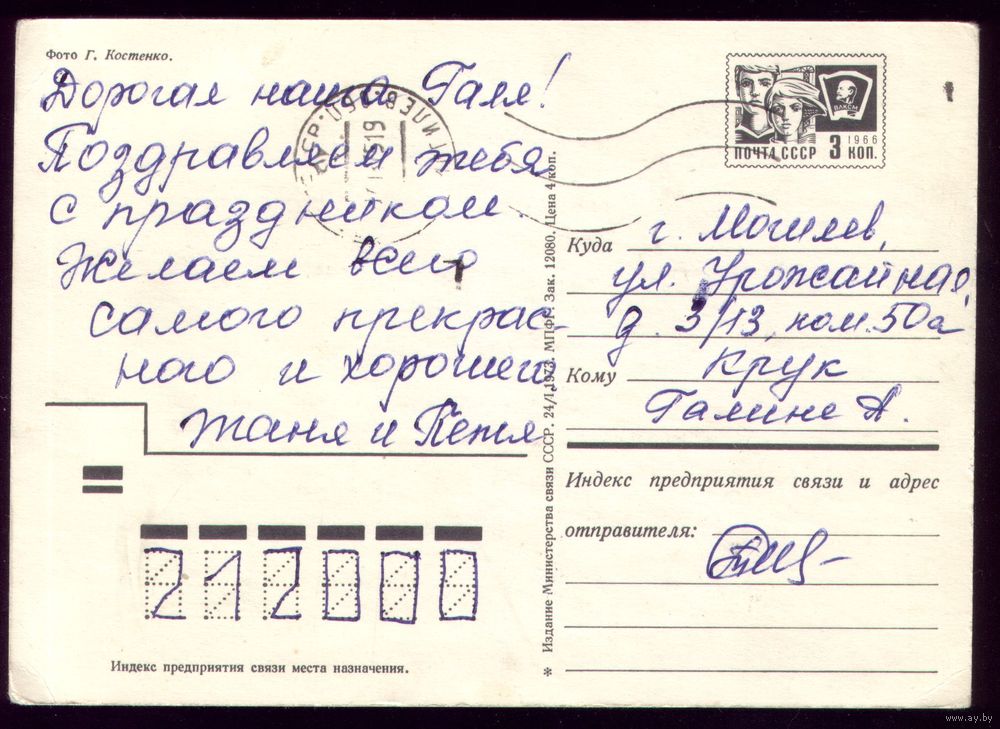 Фото Г. Костенко.
Дорогая наша Галя!
Поздравляем тебя
с праздником.
Желаем всего
самого прекрас-
ного и хорошего.
Таня и Петя
ВЛКСМ
1966
ПОЧТА СССР 3 КОП.
Куда г. Могилев,
ул. Урожайная,
д. 3/13, ком. 50а
Кому Крук
Галине А.
Индекс предприятия связи и адрес
отправителя:
212000
Индекс предприятия связи места назначения.
* Издание Министерства связи СССР. 24/I.1973. МПФГ. Зак. 12080. Цена 4 коп.
www.ay.by